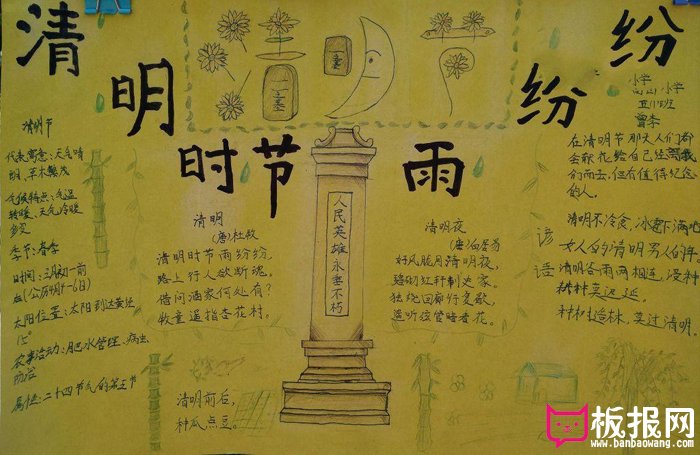 清明
时节
雨
纷纷
人民英雄永垂不朽
清明节
代表寓意：天气晴
明、草木繁茂
气候特点：气温
转暖、天气冷暖
多变
季节：春季
太阳位置：太阳到达黄经
农事活动：肥水管理、病虫
防治
属性：二十四节气的第五节
清明
(唐)杜牧
清明时节雨纷纷，
路上行人欲断魂。
借问酒家何处有？
牧童遥指杏花村。
清明前后，
种瓜点豆。
清明夜
(唐)白居易
好风胧月清明夜，
独绕回廊行复歇，
遥听弦管暗看花。
小学
五(1)班
在清明节那天人们都
会献花给自己
们而去，但有值得纪念
的人。
谚语
女人的清明男人的年。
清明谷雨两相连，浸种
耕种莫迟延。
种树造林，莫过清明。
板报网
www.banbaowang.com